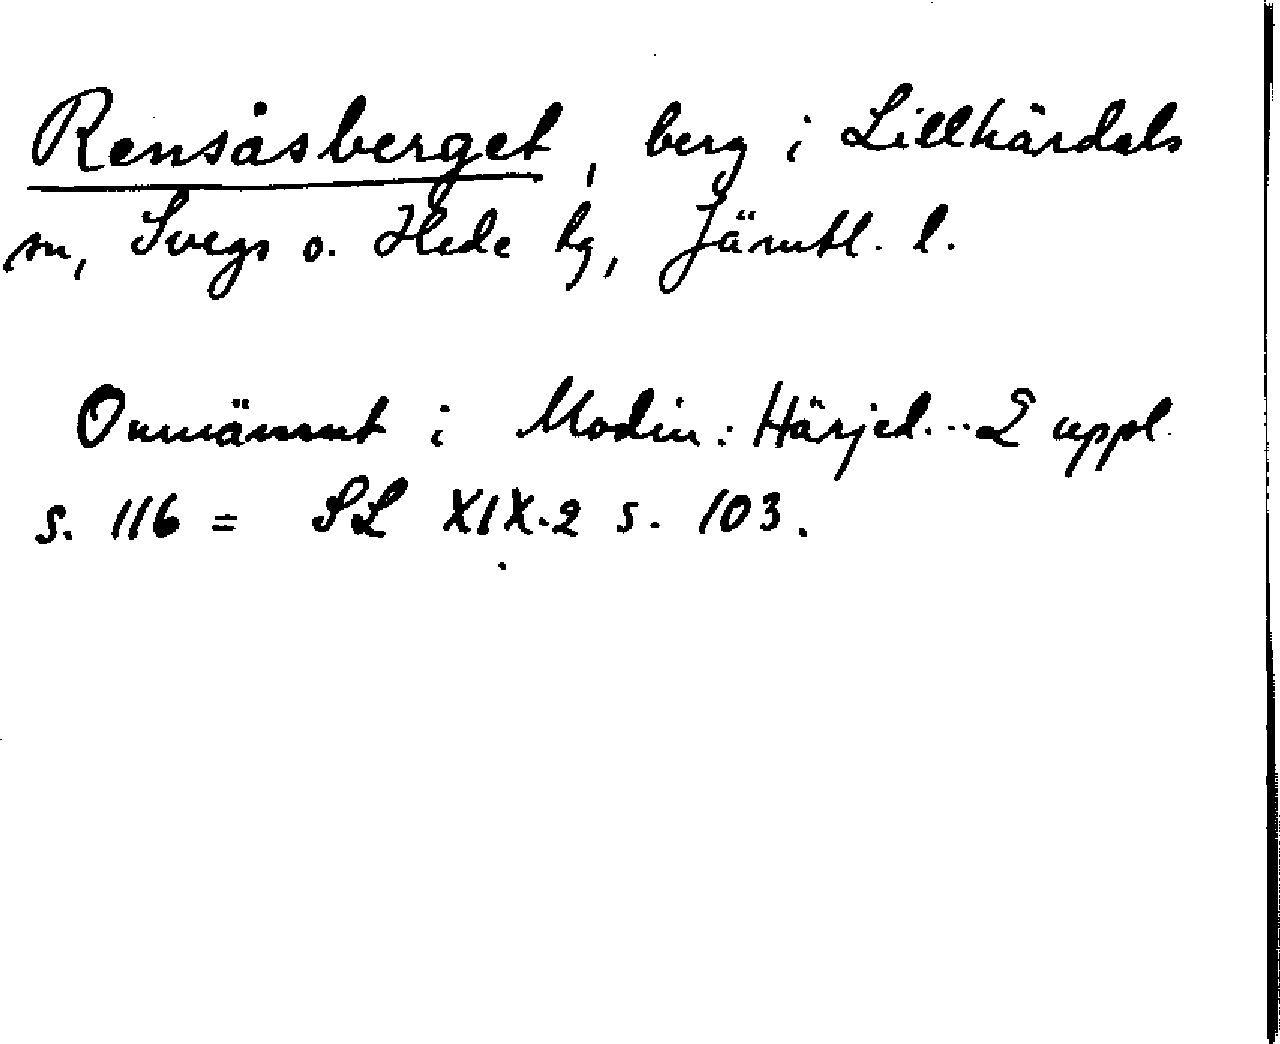 Rensåsberget, berg i Lillhärdals
sn, Svegs o. Hede hg, Jämtl. l.
Omnämnt i Modin: Härjed... 2 uppl.
s. 116 = SL XIX.2 s. 103.